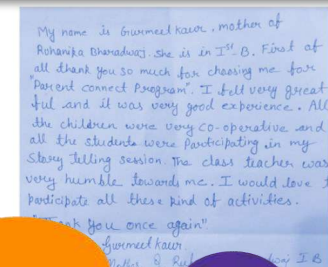 My name is Gurmeet kaur, mother of
Rohanika Bharadwaj. She is in Ist-B. First of
all thank you so much for choosing me for
"Parent connect Program". I felt very great
ful and it was very good experience. All
the children were very co-operative and
all the students were Participating in my
Story telling session. The class teacher was
very humble towards me. I would love t
participate all these kind of activities.
you once again"
Gurmeet kaur
I B